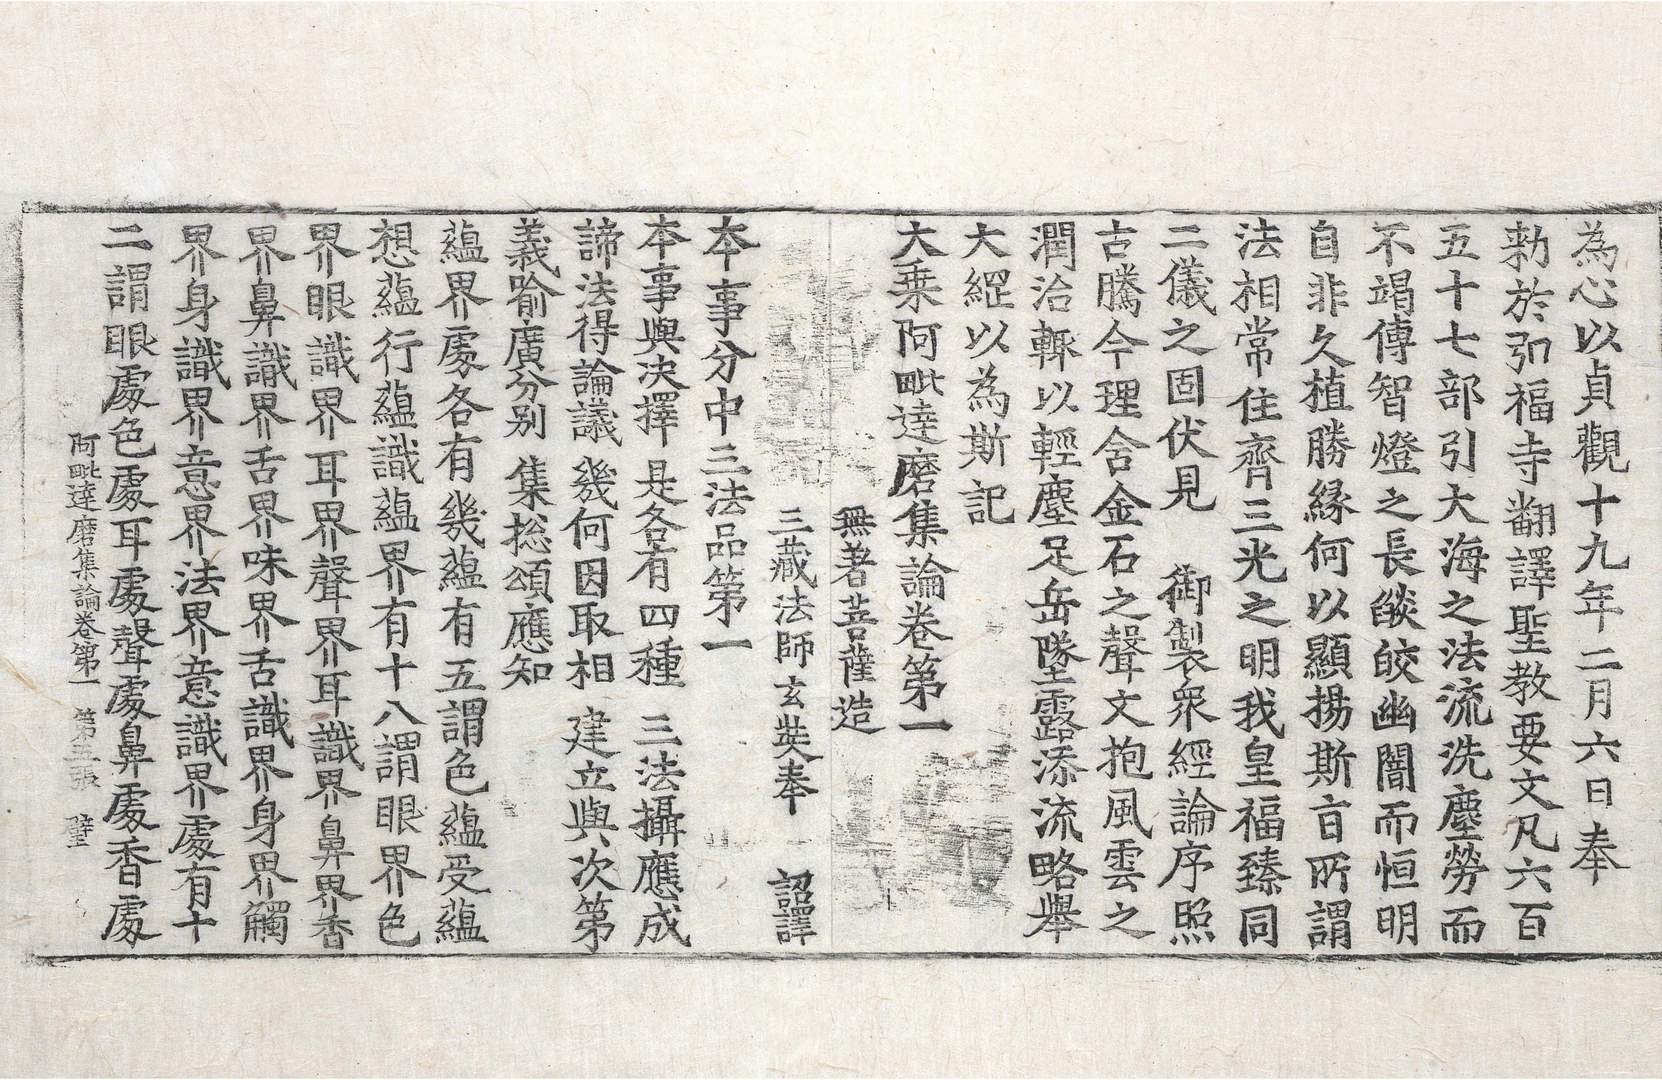 為心以貞觀十九年二月六日奉
勑於弘福寺翻譯聖教要文凡六百
五十七部引大海之法流洗塵勞而
不竭傳智燈之長燄皎幽闇而恒明
自非久植勝緣何以顯揚斯旨所謂
法相常住齊三光之明我皇福臻同
二儀之固伏見　御製衆經論序照
古騰今理含金石之聲文抱風雲之
潤治輙以輕塵足岳墜露添流略舉
大綱以為斯記
大乗阿毗達磨集論卷第一
無著菩薩造
三藏法師玄奘奉　詔譯
本事分中三法品第一
本事與決擇　是各有四種　三法攝應成
諦法得論議　幾何因取相　建立與次第
義喻廣分別　集揔頌應知
蘊界處各有幾蘊有五謂色蘊受蘊
想蘊行蘊識蘊界有十八謂眼界色
界眼識界耳界聲界耳識界鼻界香
界鼻識界舌界味界舌識界身界觸
界身識界意界法界意識界處有十
二謂眼處色處耳處聲處鼻處香處
阿毗達磨集論卷第一　第五張　璧